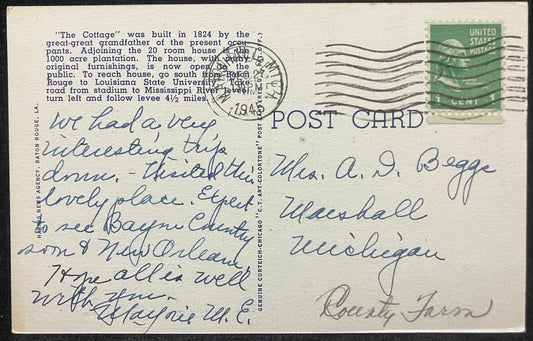 "The Cottage" was built in 1824 by the
great-great grandfather of the present occu-
pants. Adjoining the 20 room house is the
1000 acre plantation. The house, with many
original furnishings, is now open to the
public. To reach house, go south from Baton
Rouge to Louisiana State University. Take
road from stadium to Mississippi River levee,
turn left and follow levee 4½ miles.
1945
UNITED
STATES
1 CENT 1
POST CARD
We had a very
interesting trip
down. - Visited this
lovely place. Expect
to see Bayou Country
soon & New Orleans.
Hope all is well
with you.
Marjorie M. E.
Mrs. A. D. Beggs
Marshall
Michigan
County Farm
NEWS AGENCY, BATON ROUGE, LA.
GENUINE CURTEICH-CHICAGO "C.T. ART-COLORTONE" POST CARD